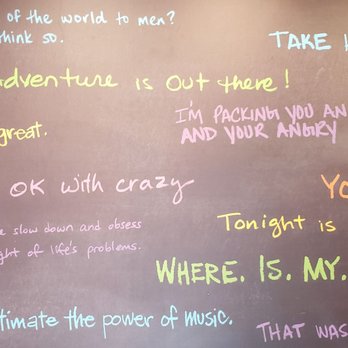 of the world to men?
think so.
TAKE
adventure is out there!
great.
I'M PACKING YOU AN
AND YOUR ANGRY
OK with crazy
YO
slow down and obsess
Tonight is
ght of life's problems.
WHERE. IS. MY.
timate the power of music.
THAT WAS